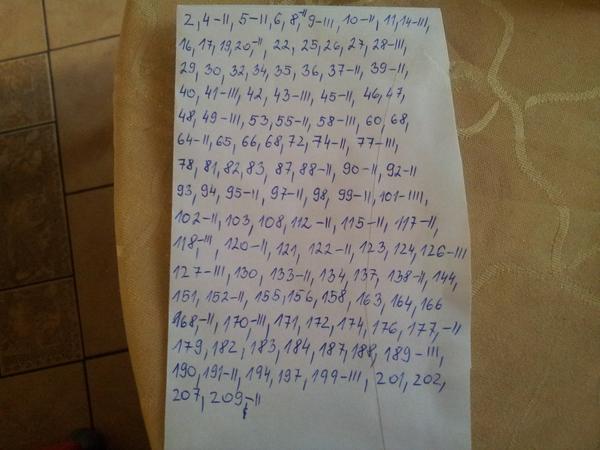 2, 4-II, 5-II, 6, 8,-II 9-III, 10-II, 11, 14-III,
16, 17, 19, 20,-II, 22, 25, 26, 27, 28-III,
29, 30, 32, 34, 35, 36, 37-II, 39-II,
40, 41-III, 42, 43-III, 45-II, 46, 47,
48, 49-III, 53, 55-II, 58-III, 60, 68,
64-II, 65, 66, 68, 72, 74-II, 77-III,
78, 81, 82, 83, 87, 88-II, 90-II, 92-II
93, 94, 95-II, 97-II, 98, 99-II, 101-IIII,
102-II, 103, 108, 112-II, 115-II, 117-II,
118,-III, 120-II, 121, 122-II, 123, 124, 126-III
127-III, 130, 133-II, 134, 137, 138-II, 144,
151, 152-II, 155, 156, 158, 163, 164, 166
168-II, 170,-III, 171, 172, 174, 176, 177,-II
179, 182, 183, 184, 187, 188, 189-III,
190, 191-II, 194, 197, 199-III, 201, 202,
207, 209,-II